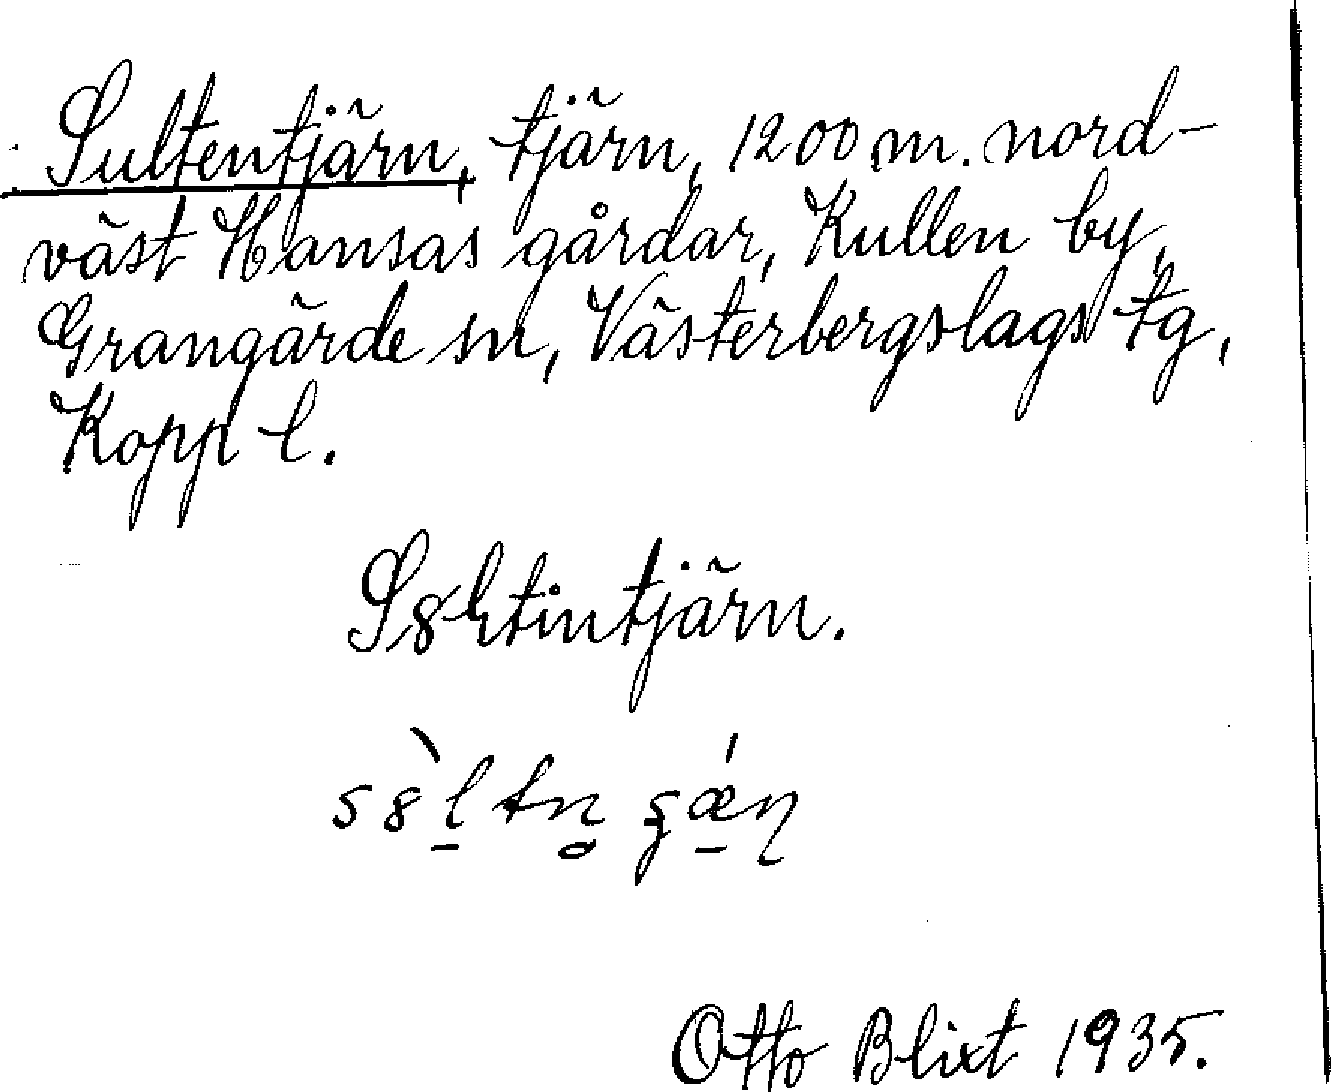 Sultentjärn, tjärn, 1200 m. nord-
väst Hansas gårdar, Kullen by,
Grangärde sn, Västerbergslags tg,
Kopp l.
S8ltintjärn.
Otto Blixt 1935.